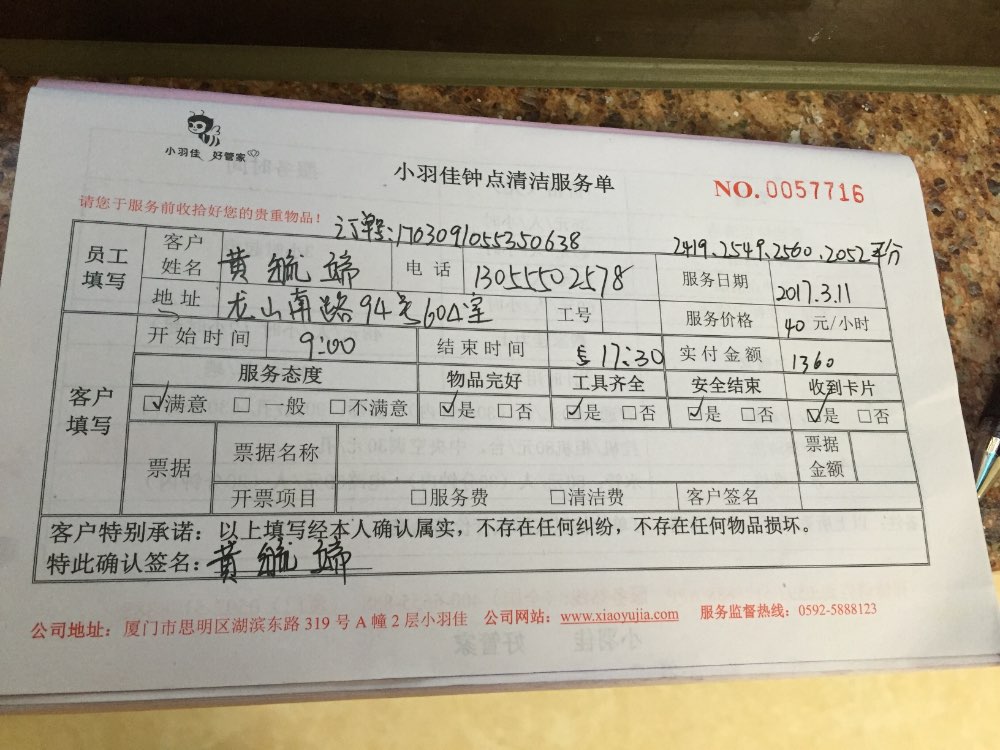 小羽佳 好管家
小羽佳钟点清洁服务单
NO.0057716
请您于服务前收拾好您的贵重物品！
订单号:170309105535063​8
2419.2549.2560.2052 平/方
员工填写 客户姓名 黄毓端 电话 13055502578 服务日期 2017.3.11
地址 龙山南路94号604室 工号 服务价格 40 元/小时
客户填写 开始时间 9:00 结束时间 17:30 实付金额 1360
服务态度 物品完好 工具齐全 安全结束 收到卡片
☑满意 □一般 □不满意 ☑是 □否 ☑是 □否 ☑是 □否 ☑是 □否
票据 票据名称 票据金额
开票项目 □服务费 □清洁费 客户签名
客户特别承诺：以上填写经本人确认属实，不存在任何纠纷，不存在任何物品损坏。
特此确认签名：黄毓端
公司地址：厦门市思明区湖滨东路 319 号 A 幢 2 层小羽佳 公司网站：www.xiaoyujia.com 服务监督热线：0592-5888123